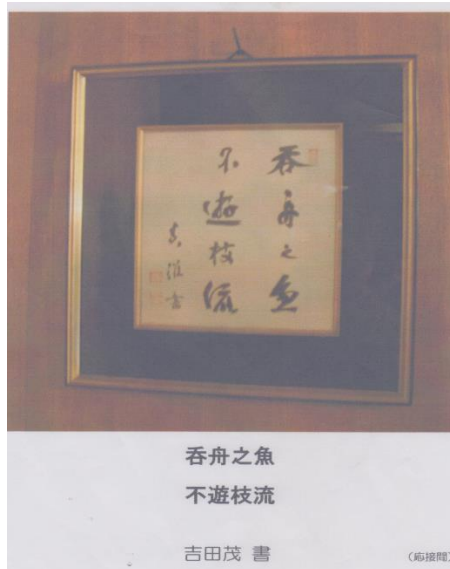 呑舟之魚
不遊枝流
呑舟之魚
不遊枝流
吉田茂 書
（応接間）